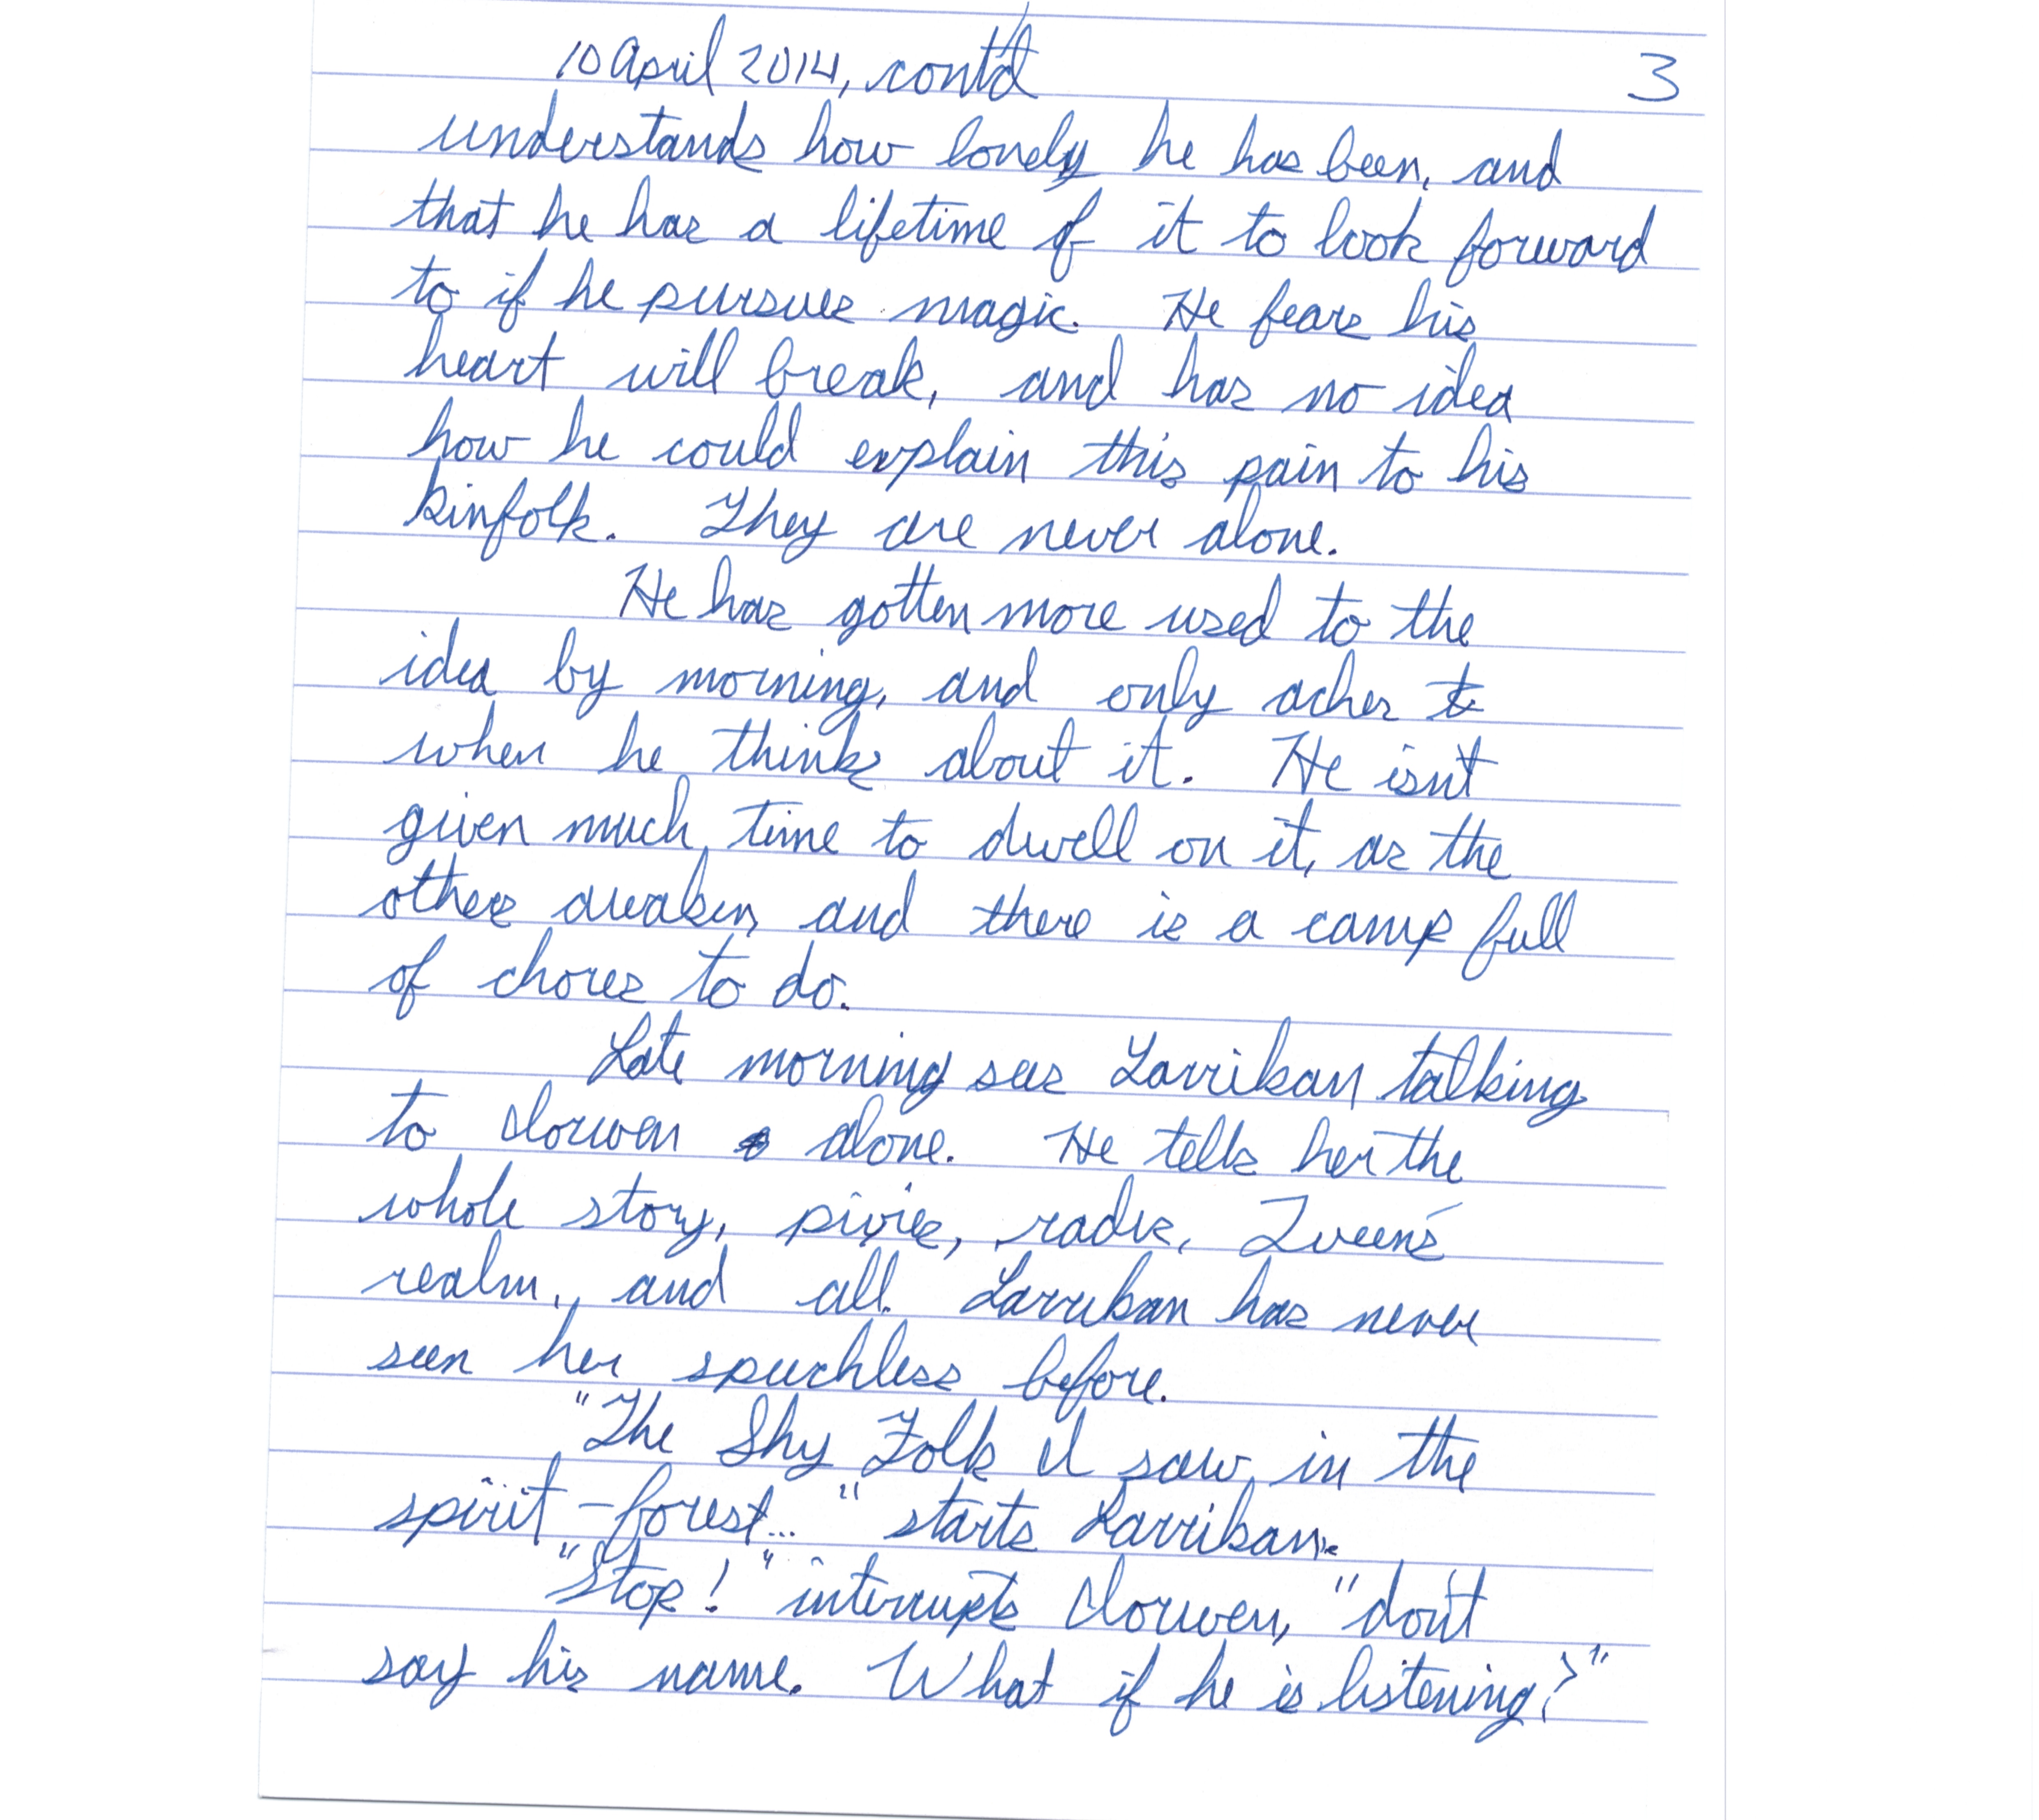 10 April 2014, cont'd 3
understands how lonely he has been, and
that he has a lifetime of it to look forward
to if he pursues magic. He fears his
heart will break, and has no idea
how he could explain this pain to his
kinfolk. They are never alone.
He has gotten more used to the
idea by morning, and only aches
when he thinks about it. He isn't
given much time to dwell on it, as the
others awaken, and there is a camp full
of chores to do.
Late morning sees Larrikan talking
to Iorwen alone. He tells her the
whole story, pixies, radix, Queen's
realm, and all. Larrikan has never
seen her speechless before.
"The Shy Folk I saw in the
spirit-forest..." starts Larrikan.
"Stop!" interrupts Iorwen, "don't
say his name. What if he is listening?"